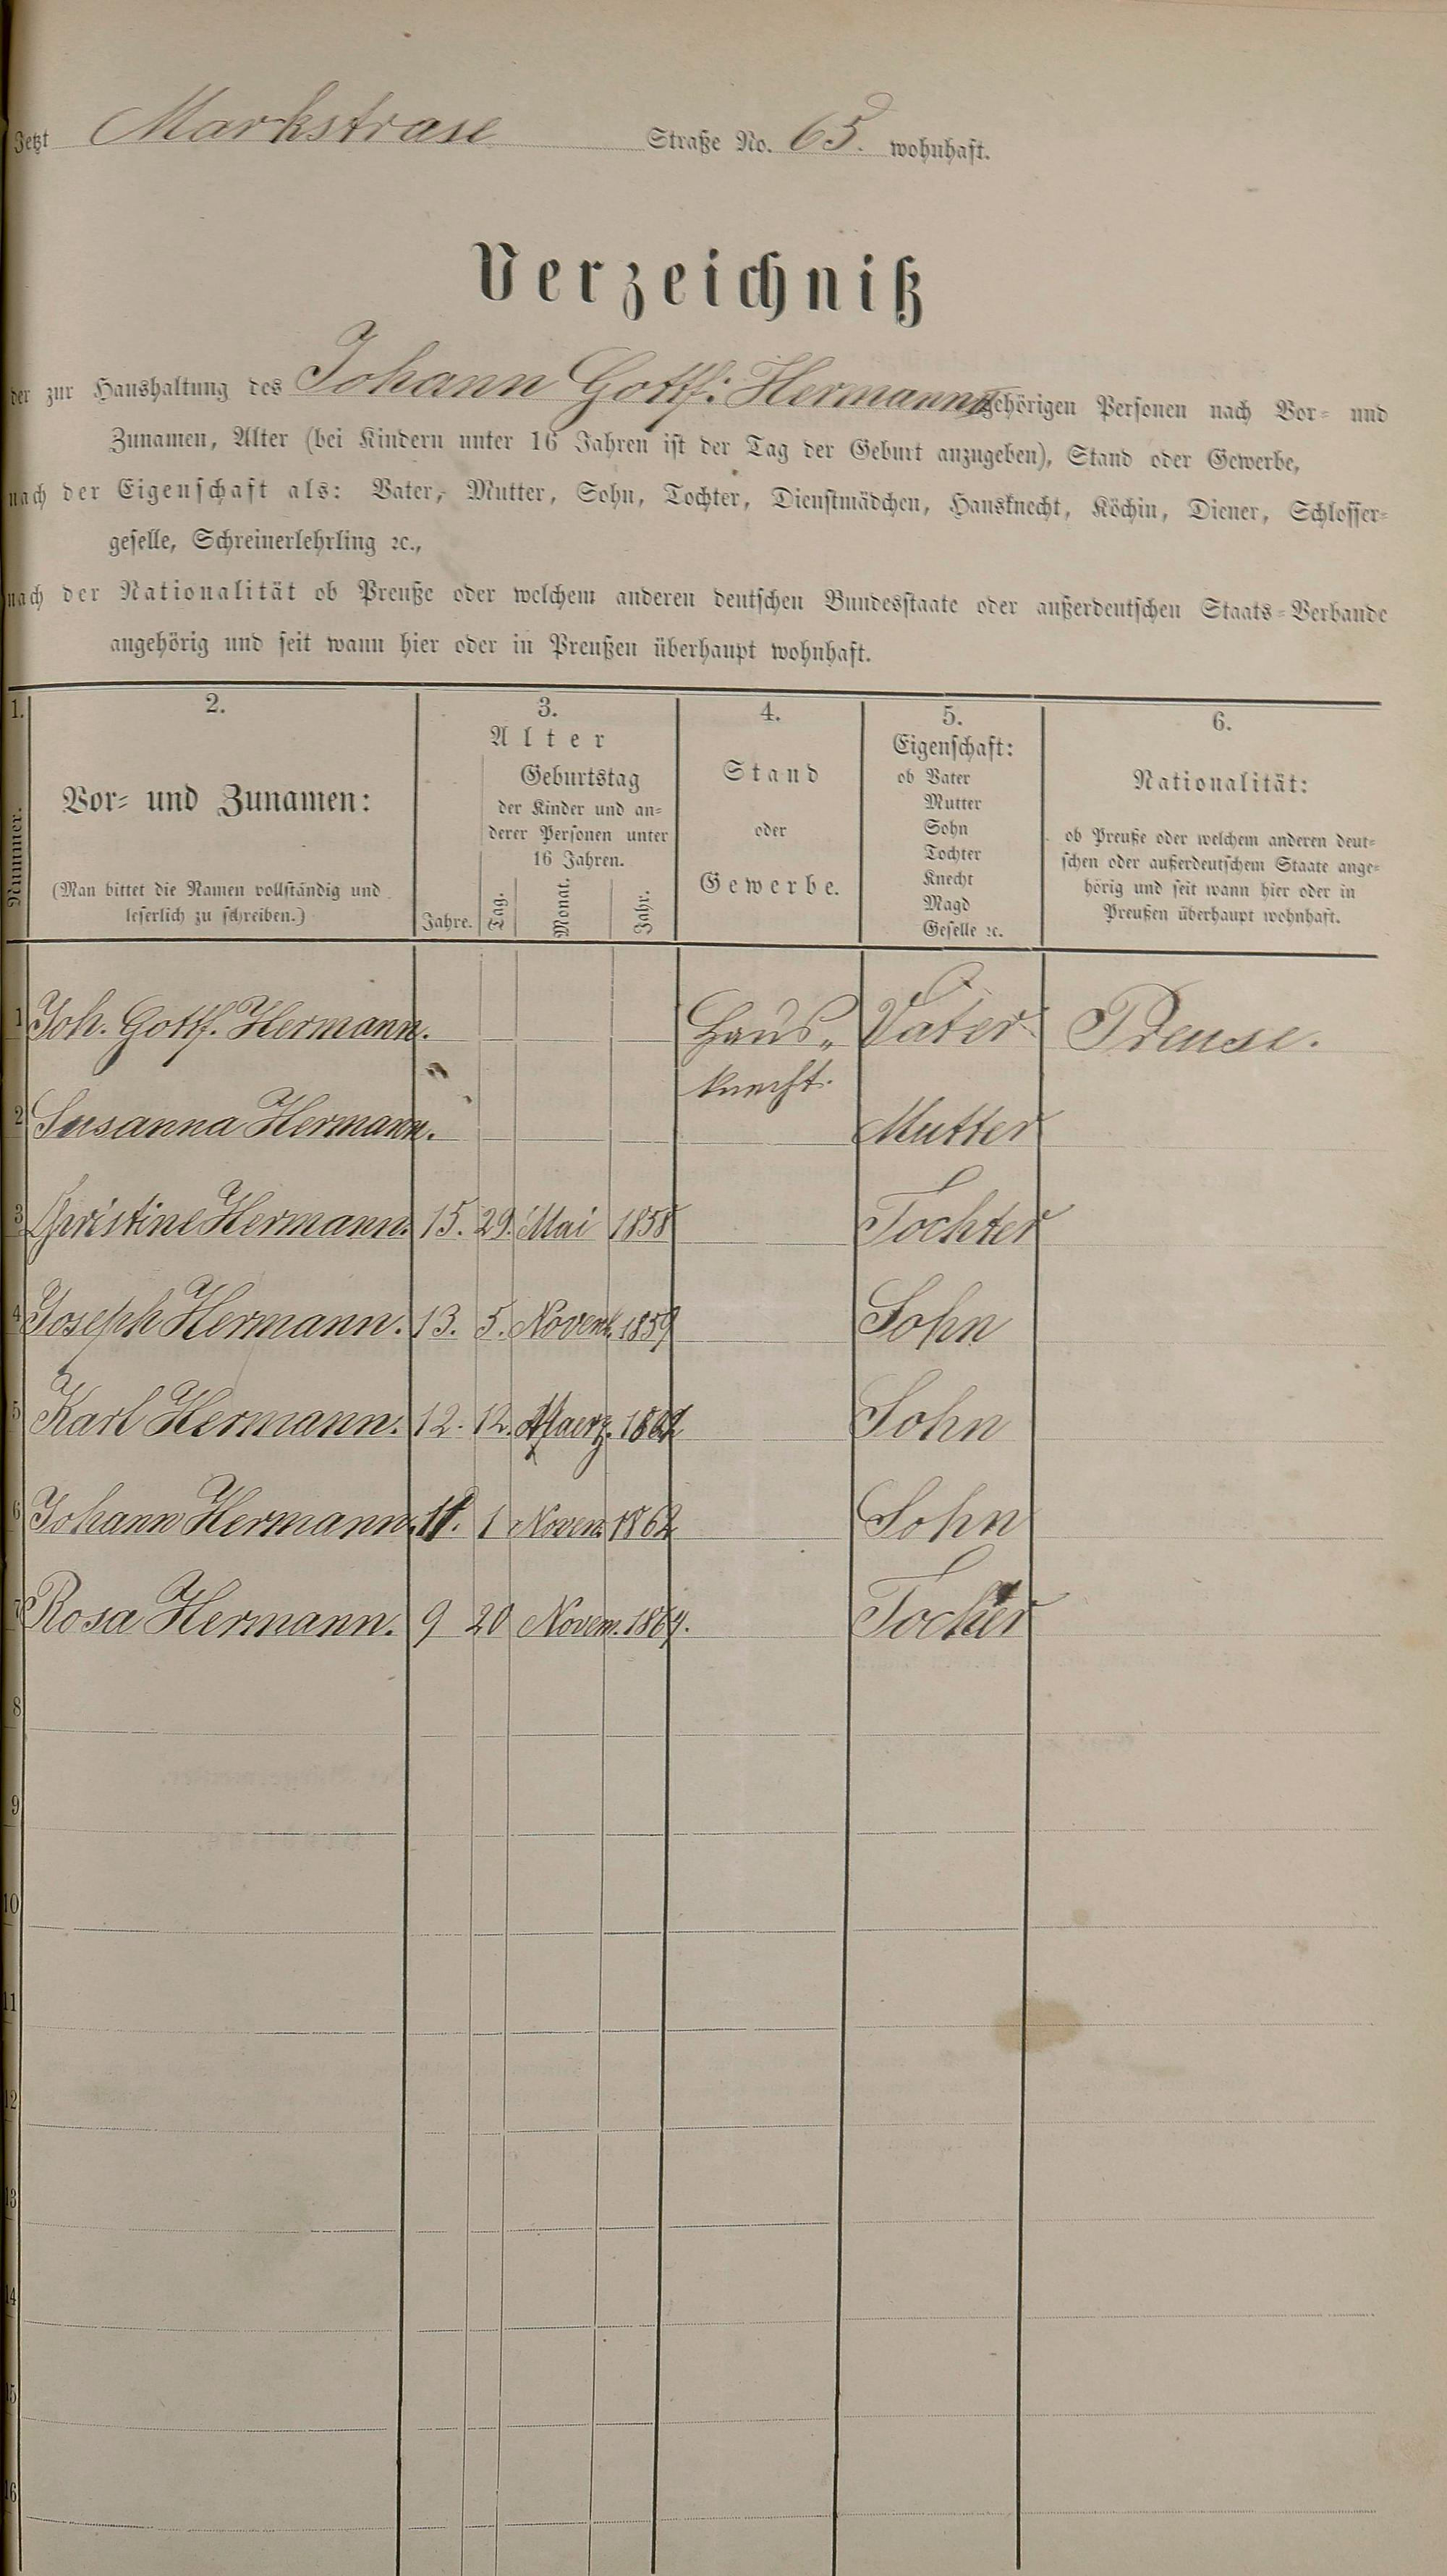 Jetzt Markstrase Straße No. 65. wohnhaft.
Verzeichniß
der zur Haushaltung des Johann Gottf: Hermann gehörigen Personen nach Vor- und
Zunamen, Alter (bei Kindern unter 16 Jahren ist der Tag der Geburt anzugeben), Stand oder Gewerbe,
nach der Eigenschaft als: Vater, Mutter, Sohn, Tochter, Dienstmädchen, Hausknecht, Köchin, Diener, Schlosser-
geselle, Schreinerlehrling ꝛc.,
nach der Nationalität ob Preuße oder welchem anderen deutschen Bundesstaate oder außerdeutschen Staats-Verbande
angehörig und seit wann hier oder in Preußen überhaupt wohnhaft.
1. 2. 3. 4. 5. 6.
Nummer.
Vor- und Zunamen:
(Man bittet die Namen vollständig und
leserlich zu schreiben.)
Alter
Geburtstag
der Kinder und an-
derer Personen unter
16 Jahren.
Jahre. Tag. Monat. Jahr.
Stand
oder
Gewerbe.
Eigenschaft:
ob Vater
Mutter
Sohn
Tochter
Knecht
Magd
Geselle ꝛc.
Nationalität:
ob Preuße oder welchem anderen deut-
schen oder außerdeutschem Staate ange-
hörig und seit wann hier oder in
Preußen überhaupt wohnhaft.
1 Joh. Gottf. Hermann. Haus„ Vater Preuse.
knecht.
2 Susanna Hermann. Mutter
3 Christine Hermann. 15. 29. Mai 1858 Tochter
4 Joseph Hermann. 13. 5. Novemb. 1859 Sohn
5 Karl Hermann. 12. 12. Maerz. Sohn
6 Johann Hermann. 11. 1 Novem. 1862 Sohn
7 Rosa Hermann. 9 20 Novem. 1864. Tochter
8
9
10
11
12
13
14
15
16